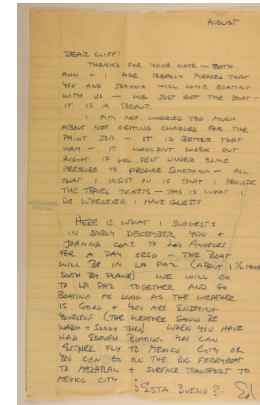 AUGUST
DEAR CLIFF:
THANKS FOR YOUR NOTE - BOTH
ANN + I ARE REALLY PLEASED THAT
YOU AND JOANNA WILL COME BOATING
WITH US - WE JUST GOT THE BOAT -
IT IS A BEAUT.
I AM NOT WORRIED TOO MUCH
ABOUT NOT GETTING CHARGED FOR THE
PAINT JOB - IT IS BETTER THAT
WAY - IT WOULDNT WORK OUT
RIGHT IF YOU FELT UNDER SOME
PRESSURE TO PRODUCE SOMETHING - ALL
THAT I INSIST ON IS THAT I PROVIDE
THE TRAVEL TICKETS - THIS IS WHAT I
DO WHENEVER I HAVE GUESTS
HERE IS WHAT I SUGGEST
IN EARLY DECEMBER YOU +
JOANNA COME TO LOS ANGELES
FOR A DAY OR SO - THE BOAT
WILL BE IN LA PAZ (ABOUT 1 1/2 HOURS
SOUTH BY PLANE) WE WILL GO
TO LA PAZ TOGETHER AND GO
BOATING AS LONG AS THE WEATHER
IS GOOD + YOU ARE ENJOYING
YOURSELF (THE WEATHER SHOULD BE
WARM + SUNNY THEN) WHEN YOU HAVE
HAD ENOUGH BOATING YOU CAN
EITHER FLY TO MEXICO CITY OR
YOU CAN GO ON THE BIG FERRYBOAT
TO MAZATLAN + SURFACE TRANSPORT TO
MEXICO CITY
¿ESTA BUENO? Ed